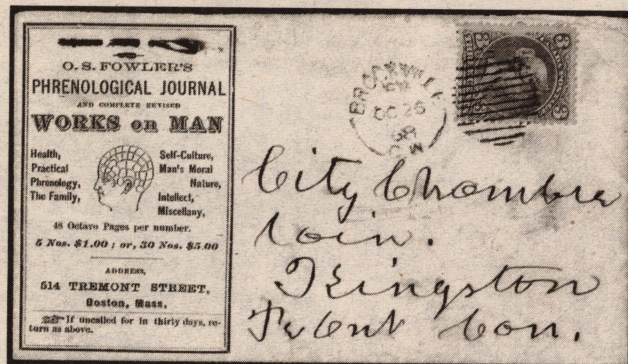 O. S. FOWLER'S
PHRENOLOGICAL JOURNAL
AND COMPLETE REVISED
WORKS on MAN
Health,
Practical
Phrenology,
The Family,
Self-Culture,
Man's Moral
Nature,
Intellect,
Miscellany,
48 Octavo Pages per number.
5 Nos. $1.00 ; or, 30 Nos. $5.00
ADDRESS,
514 TREMONT STREET,
Boston, Mass.
If uncalled for in thirty days, re-
turn as above.
BROCKVILLE
OC 26
3 3
City Chambre
Coin.
Kingston
Con.